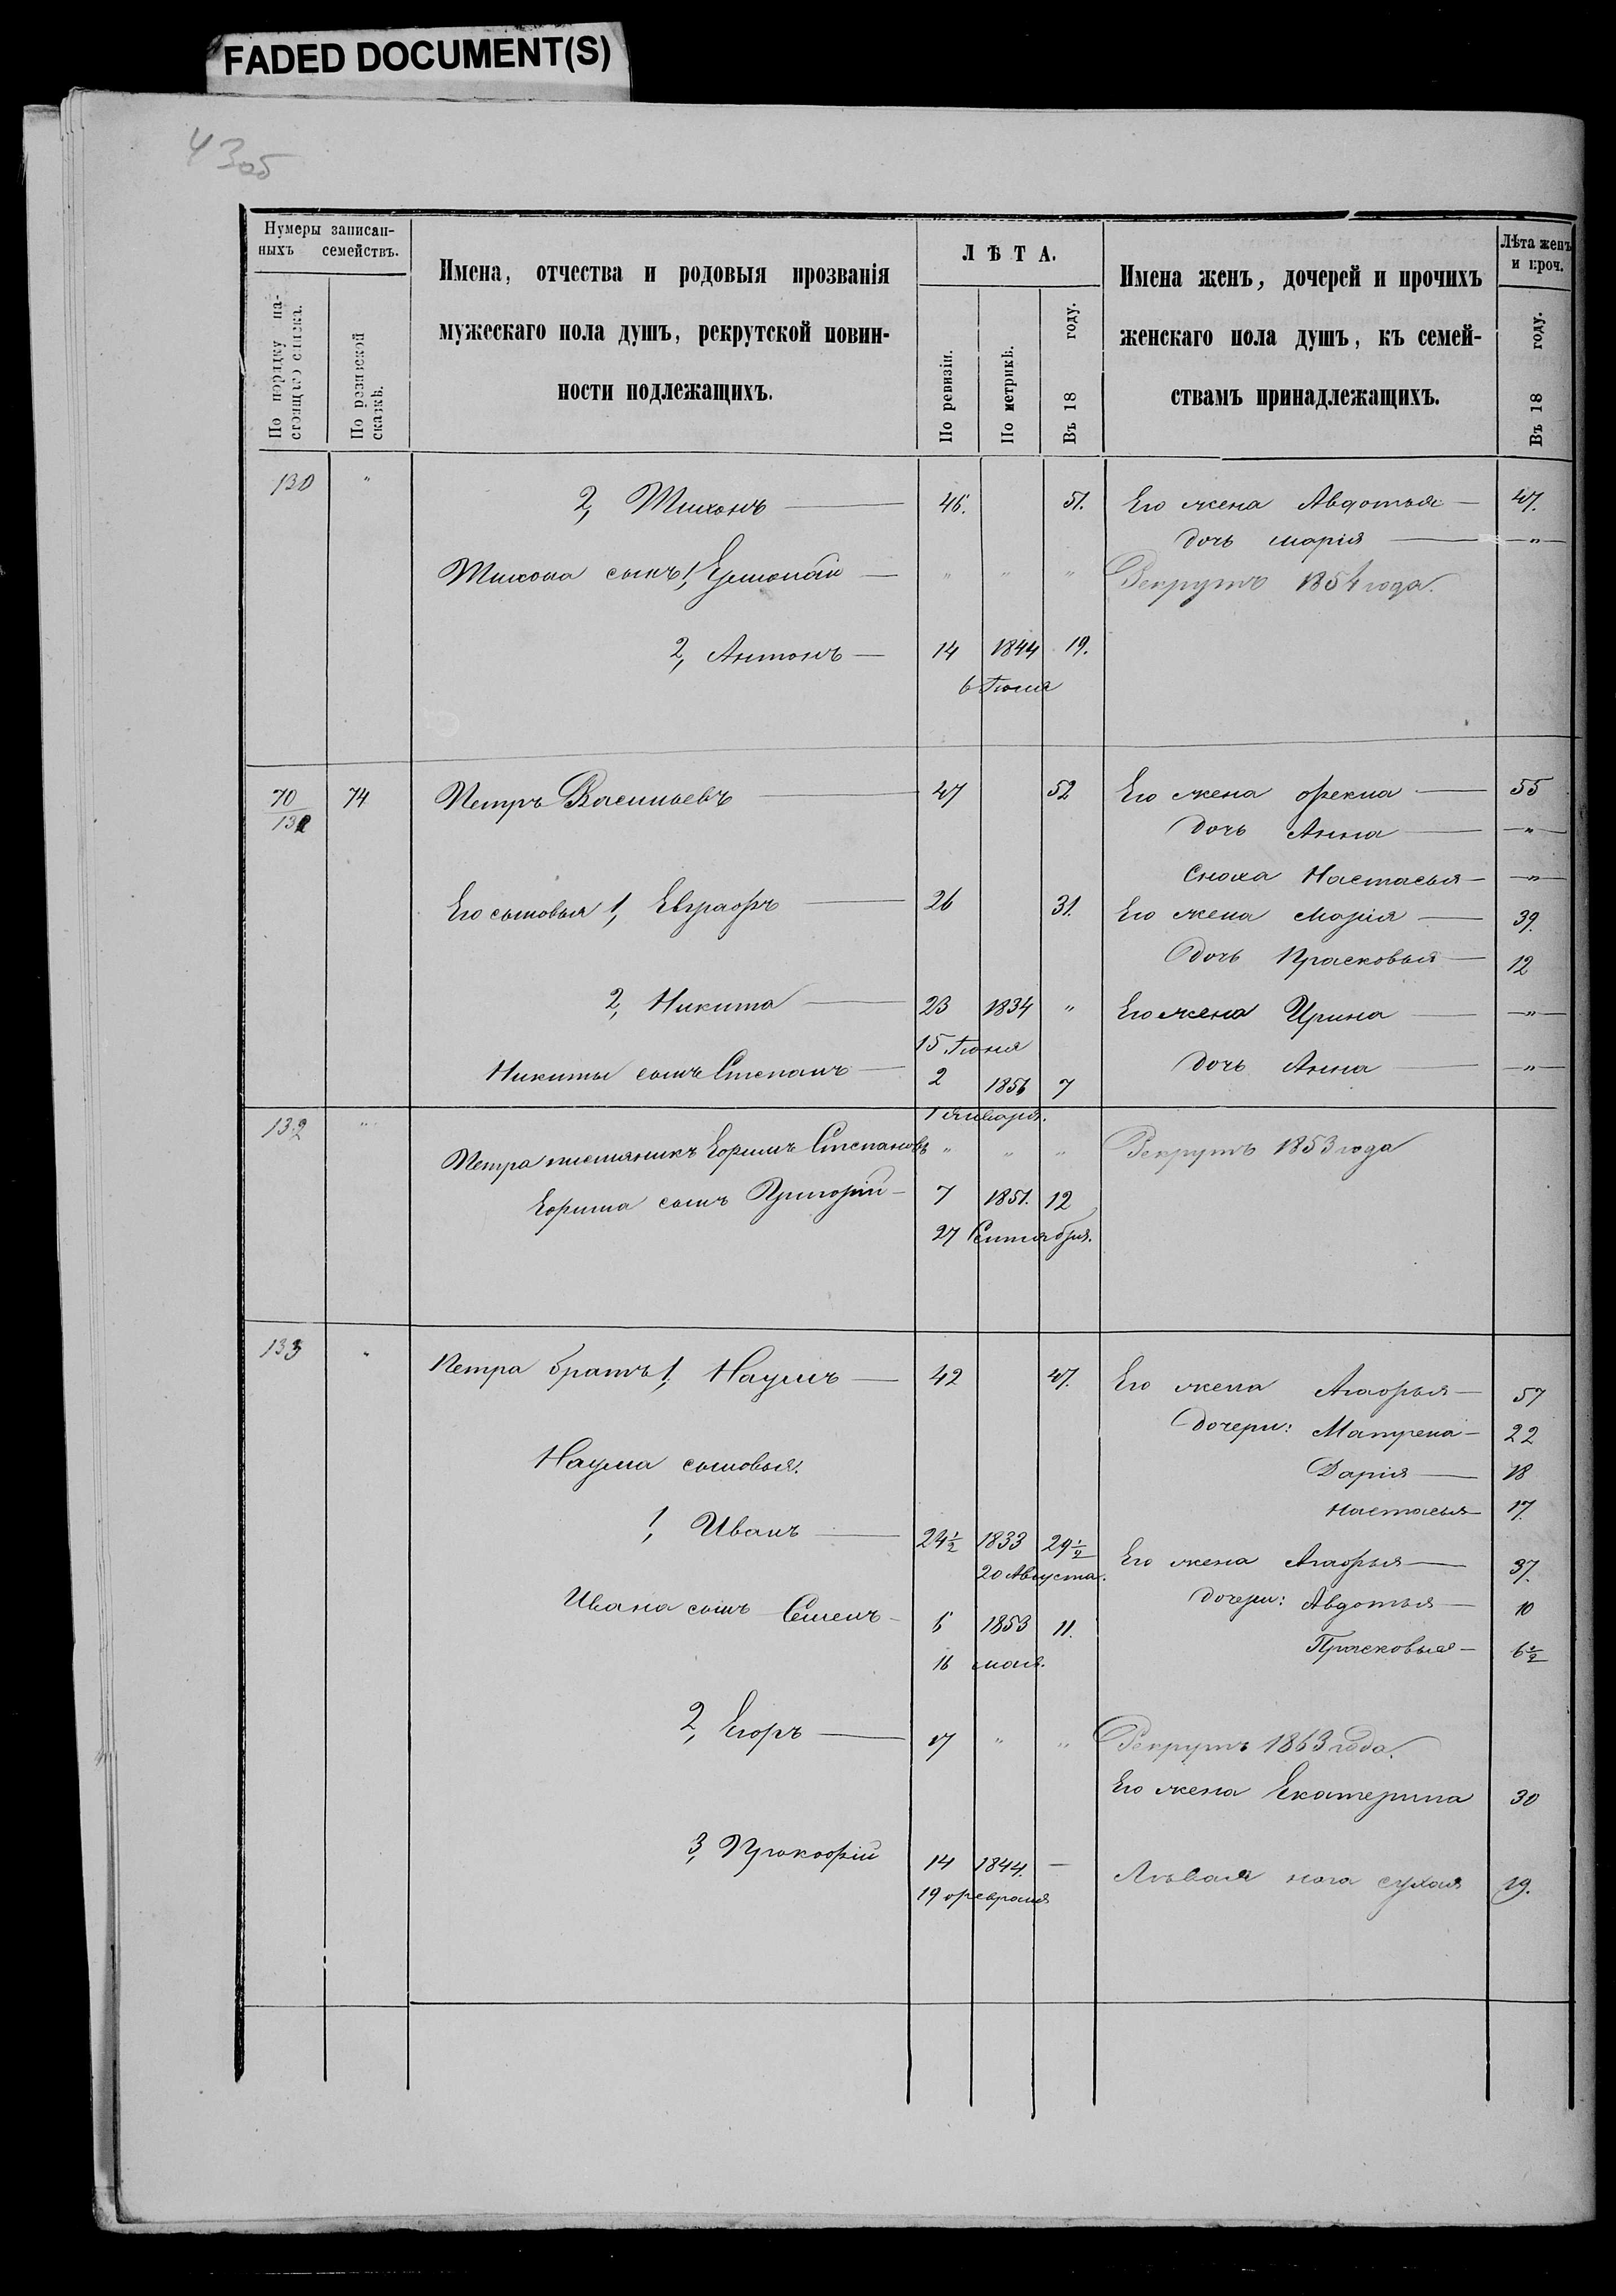 FADED DOCUMENT(S)
43об
Нумеры записан-
ныхъ семействъ.
По порядку на-
стоящаго списка.
По ревизской
сказкѣ.
Имена, отчества и родовыя прозванія
мужескаго пола душъ, рекрутской повин-
ности подлежащихъ.
ЛѢТА.
По ревизіи.
По метрикѣ.
Въ 18 году.
Имена женъ, дочерей и прочихъ
женскаго пола душъ, къ семей-
ствамъ принадлежащихъ.
Лѣта женъ
и проч.
Въ 18 году.
130 " 2, Тихонъ — 46. 51. Его жена Авдотья — 47.
дочь Марія — "
Тихона сынъ 1, Ермолай — " " " Рекрутъ 1854 года.
2, Антонъ — 14 1844 19.
6 Іюля
70/131 74 Петръ Васильевъ — 47 52 Его жена Фекла — 55
дочь Анна — "
Сноха Настасья — "
Его сыновья 1, Евграфъ — 26 31. Его жена Марія — 39.
дочь Прасковья — 12
2, Никита — 23 1834 " Его жена Ирина — "
15 Іюня
Никиты сынъ Степанъ — 2 1856 7 дочь Анна — "
1 Января.
132 " Петра племяникъ Ефимъ Степановъ " " " Рекрутъ 1853 года
Ефима сынъ Григорій — 7 1851. 12
27 Сентября.
133 " Петра братъ 1, Наумъ — 42 47. Его жена Агафья — 57
дочери: Матрена — 22
Наума сыновья:
Дарія — 18
Настасья — 17.
1, Иванъ — 24½ 1833 29½ Его жена Агафья — 37.
20 Августа.
Ивана сынъ Семенъ — 6 1853 11. дочери: Авдотья — 10
16 мая.
Прасковья — 6½
2, Егоръ — 17 " " Рекрутъ 1863 года.
Его жена Екатерина 30
3, Прокофій 14 1844. — Лѣвая нога сухая 19.
19 февраля